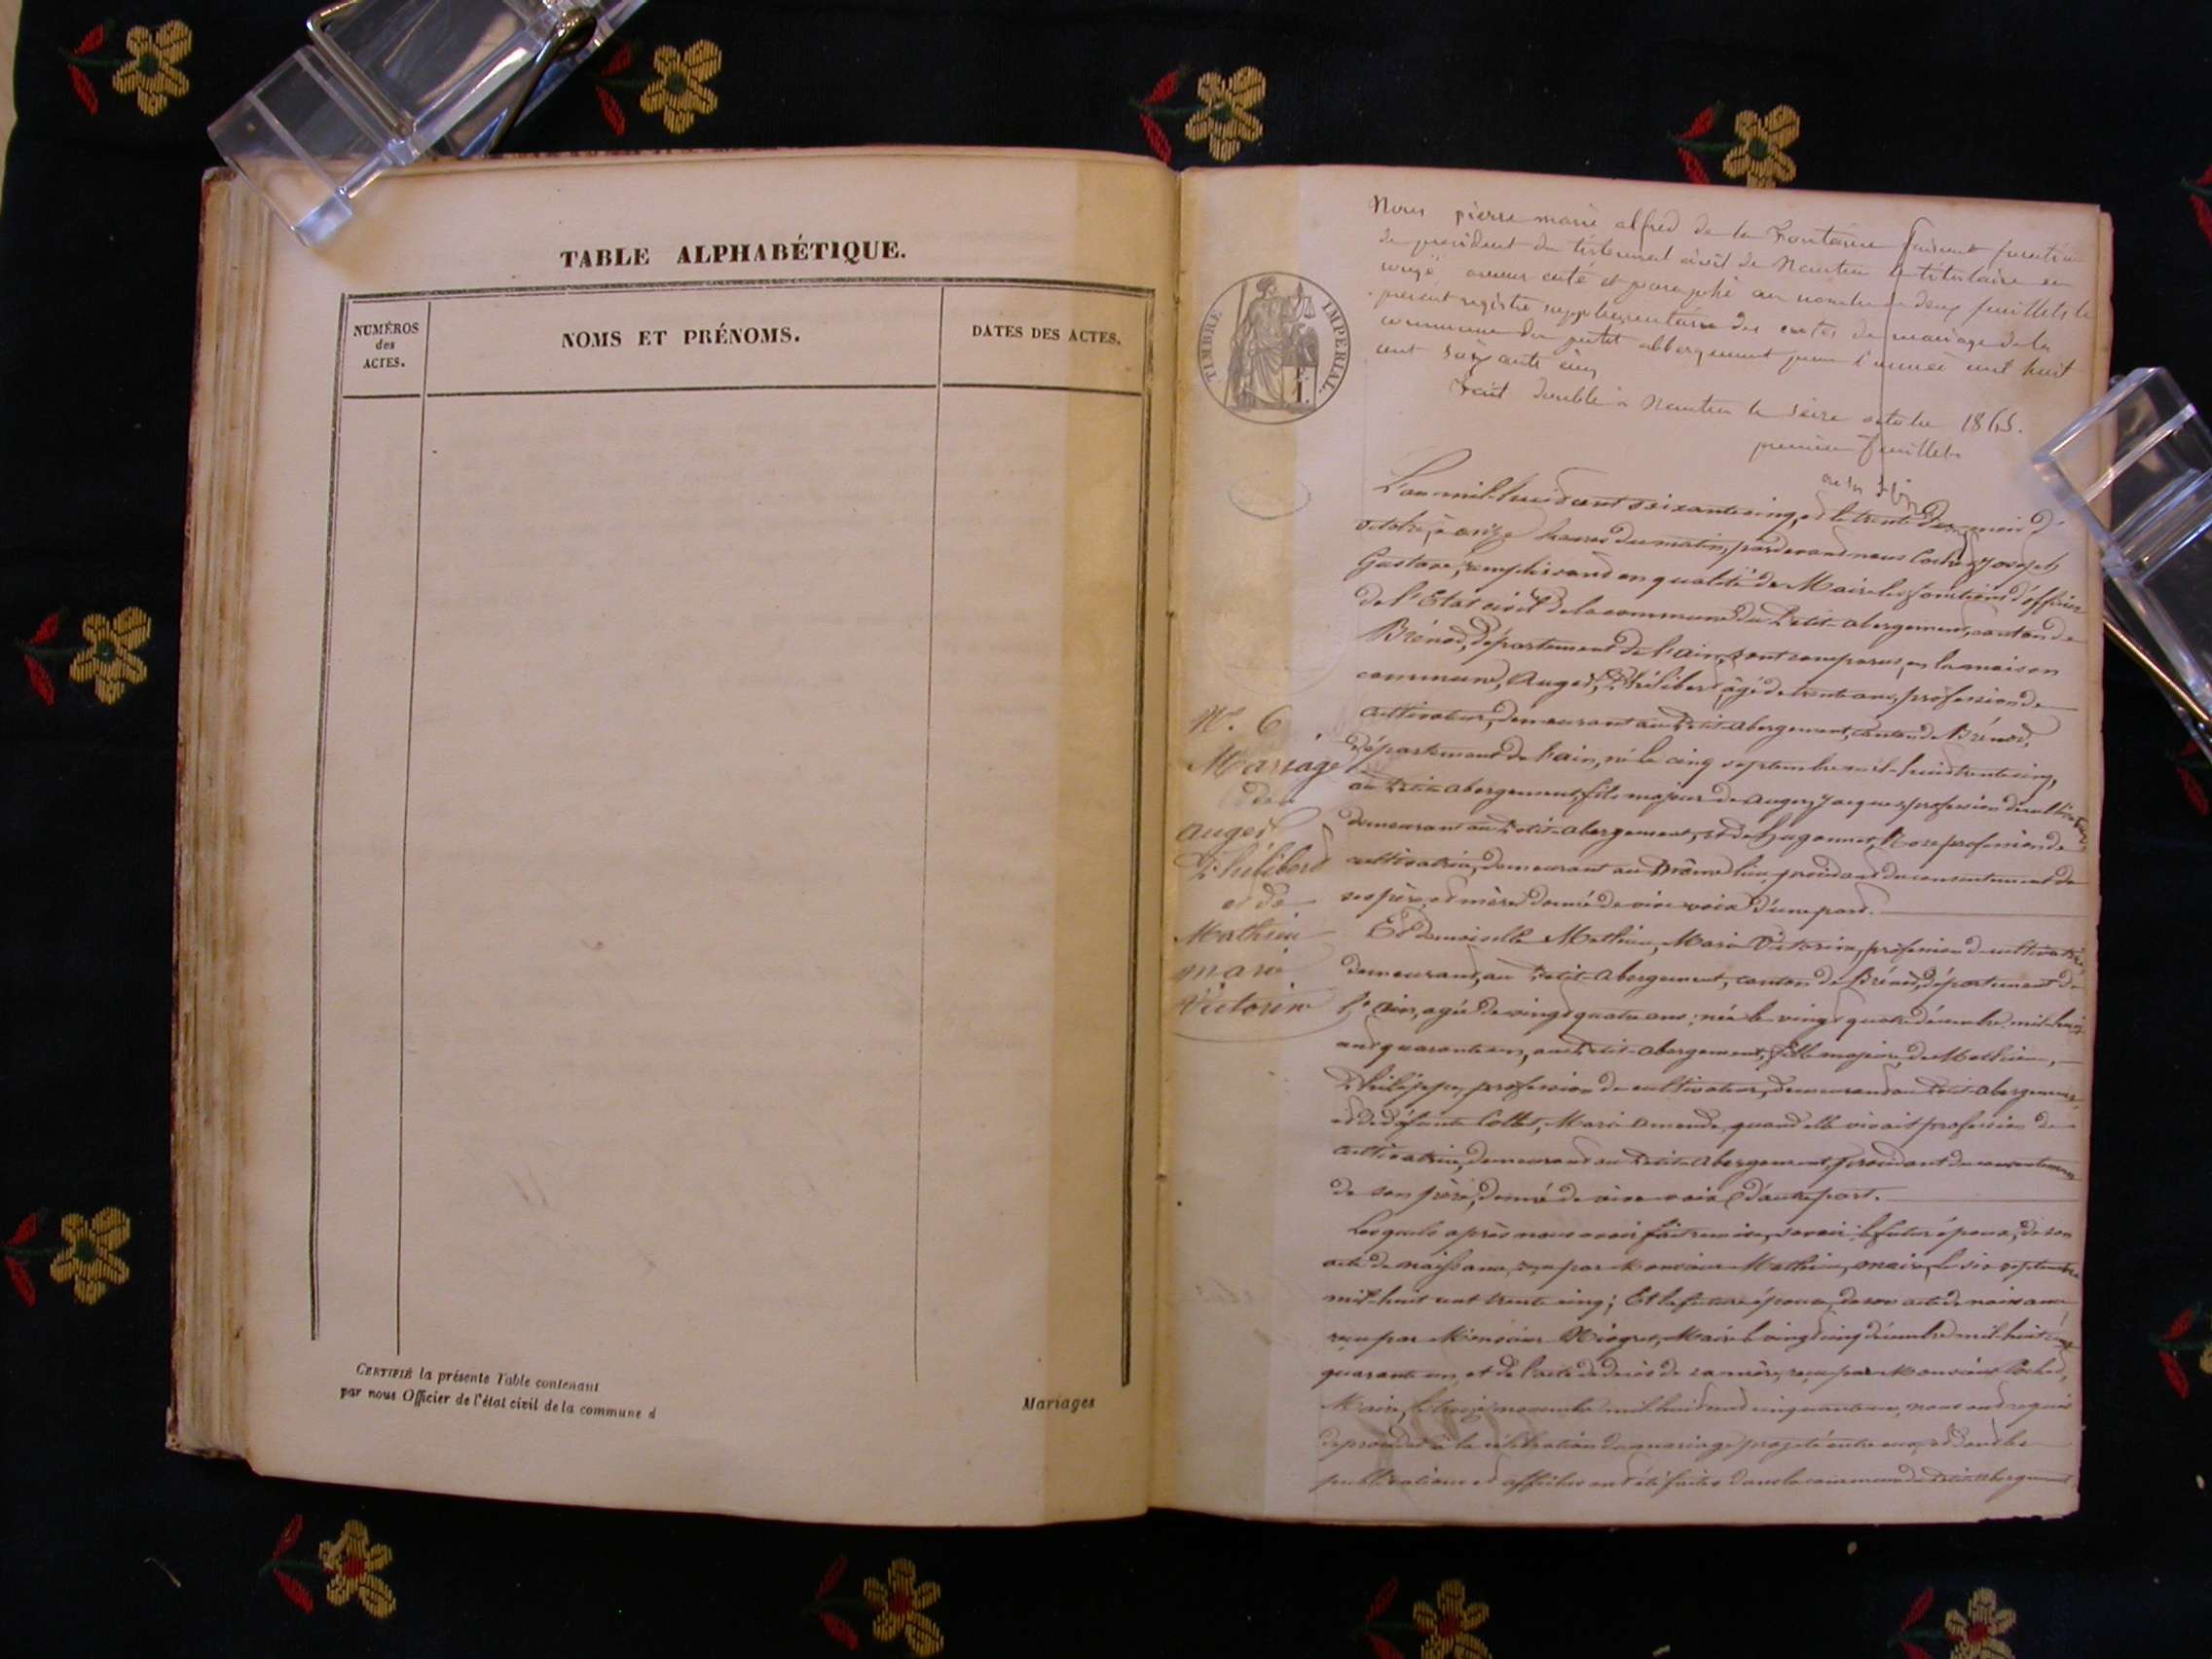 TABLE ALPHABÉTIQUE.
NUMÉROS
des
ACTES.
NOMS ET PRÉNOMS.
DATES DES ACTES.
CERTIFIÉ la présente Table contenant
par nous Officier de l'état civil de la commune d
Mariages
TIMBRE IMPÉRIAL.
1.
Nous pierre marie alfred de la Fontaine faisant
de président du tribunal civil de Nantua le titulaire en
congé avons coté et paraphé au nombre de deux feuillets le
présent registre supplémentaire des actes de mariage de la
commune du petit abbergement pour l'année mil huit
cent soixante cinq
Fait double à Nantua le seize octobre 1865.
premier feuillet
L'an mil-huit cent soixante cinq, et le trente du mois d'
octobre, à onze heures du matin, pardevant nous Cochet Joseph
Gustave, remplissant en qualité de Maire les fonctions d'officier
de l'Etat civil de la commune du Petit-abergement, canton de
Brénod, département de l'ain, sont comparus, en la maison
commune, Auger, Philibert, âgé de trente ans, profession de
cultivateur, demeurant au Petit-abergement, canton de Brénod,
département de l'ain, né le cinq septembre mil-huit trente cinq,
au Petit-abergement, fils majeur de Auger, Jacques, profession de cultivateur,
demeurant au Petit-abergement, et de Hugonnet, Rose profession de
cultivatrice, demeurant au même lieu, procédant du consentement de
ses père et mère donné de vive voix d'une part.
N.º 6
Mariage
de
Auger
Philibert
et de
Mathieu
marie
Victorine
Et demoiselle Mathieu, Marie Victorine, profession de cultivatrice,
demeurant, au Petit-abergement, canton de Brénod, département de
l'ain, agée de vingt quatre ans, née le vingt quatre décembre mil-huit
cent quarante un, au Petit-abergement, fille majeure de Mathieu,
Philippe, profession de cultivateur, demeurant au Petit-abergement,
et de défunte Collet, Marie quand elle vivait profession de
cultivatrice, demeurant au Petit-abergement, procédant du consentement
de son père, donné de vive voix d'autre part.
Lesquels après nous avoir fait remise, savoir: le futur époux, de son
acte de naissance, reçu par Monsieur Mathieu, maire, le six septembre
mil-huit cent trente cinq; Et la future épouse, de son acte de naissance
reçu par Monsieur Maire le vingt cinq décembre mil huit cent
quarante un, et de l'acte de décès de sa mère, reçu par Monsieur Cochet,
Maire, le novembre mil huit cent cinquante nous ont requis
de procéder à la célébration du mariage projeté entre eux, et dont les
publications et affiches ont été faites dans la commune du Petit-abergement